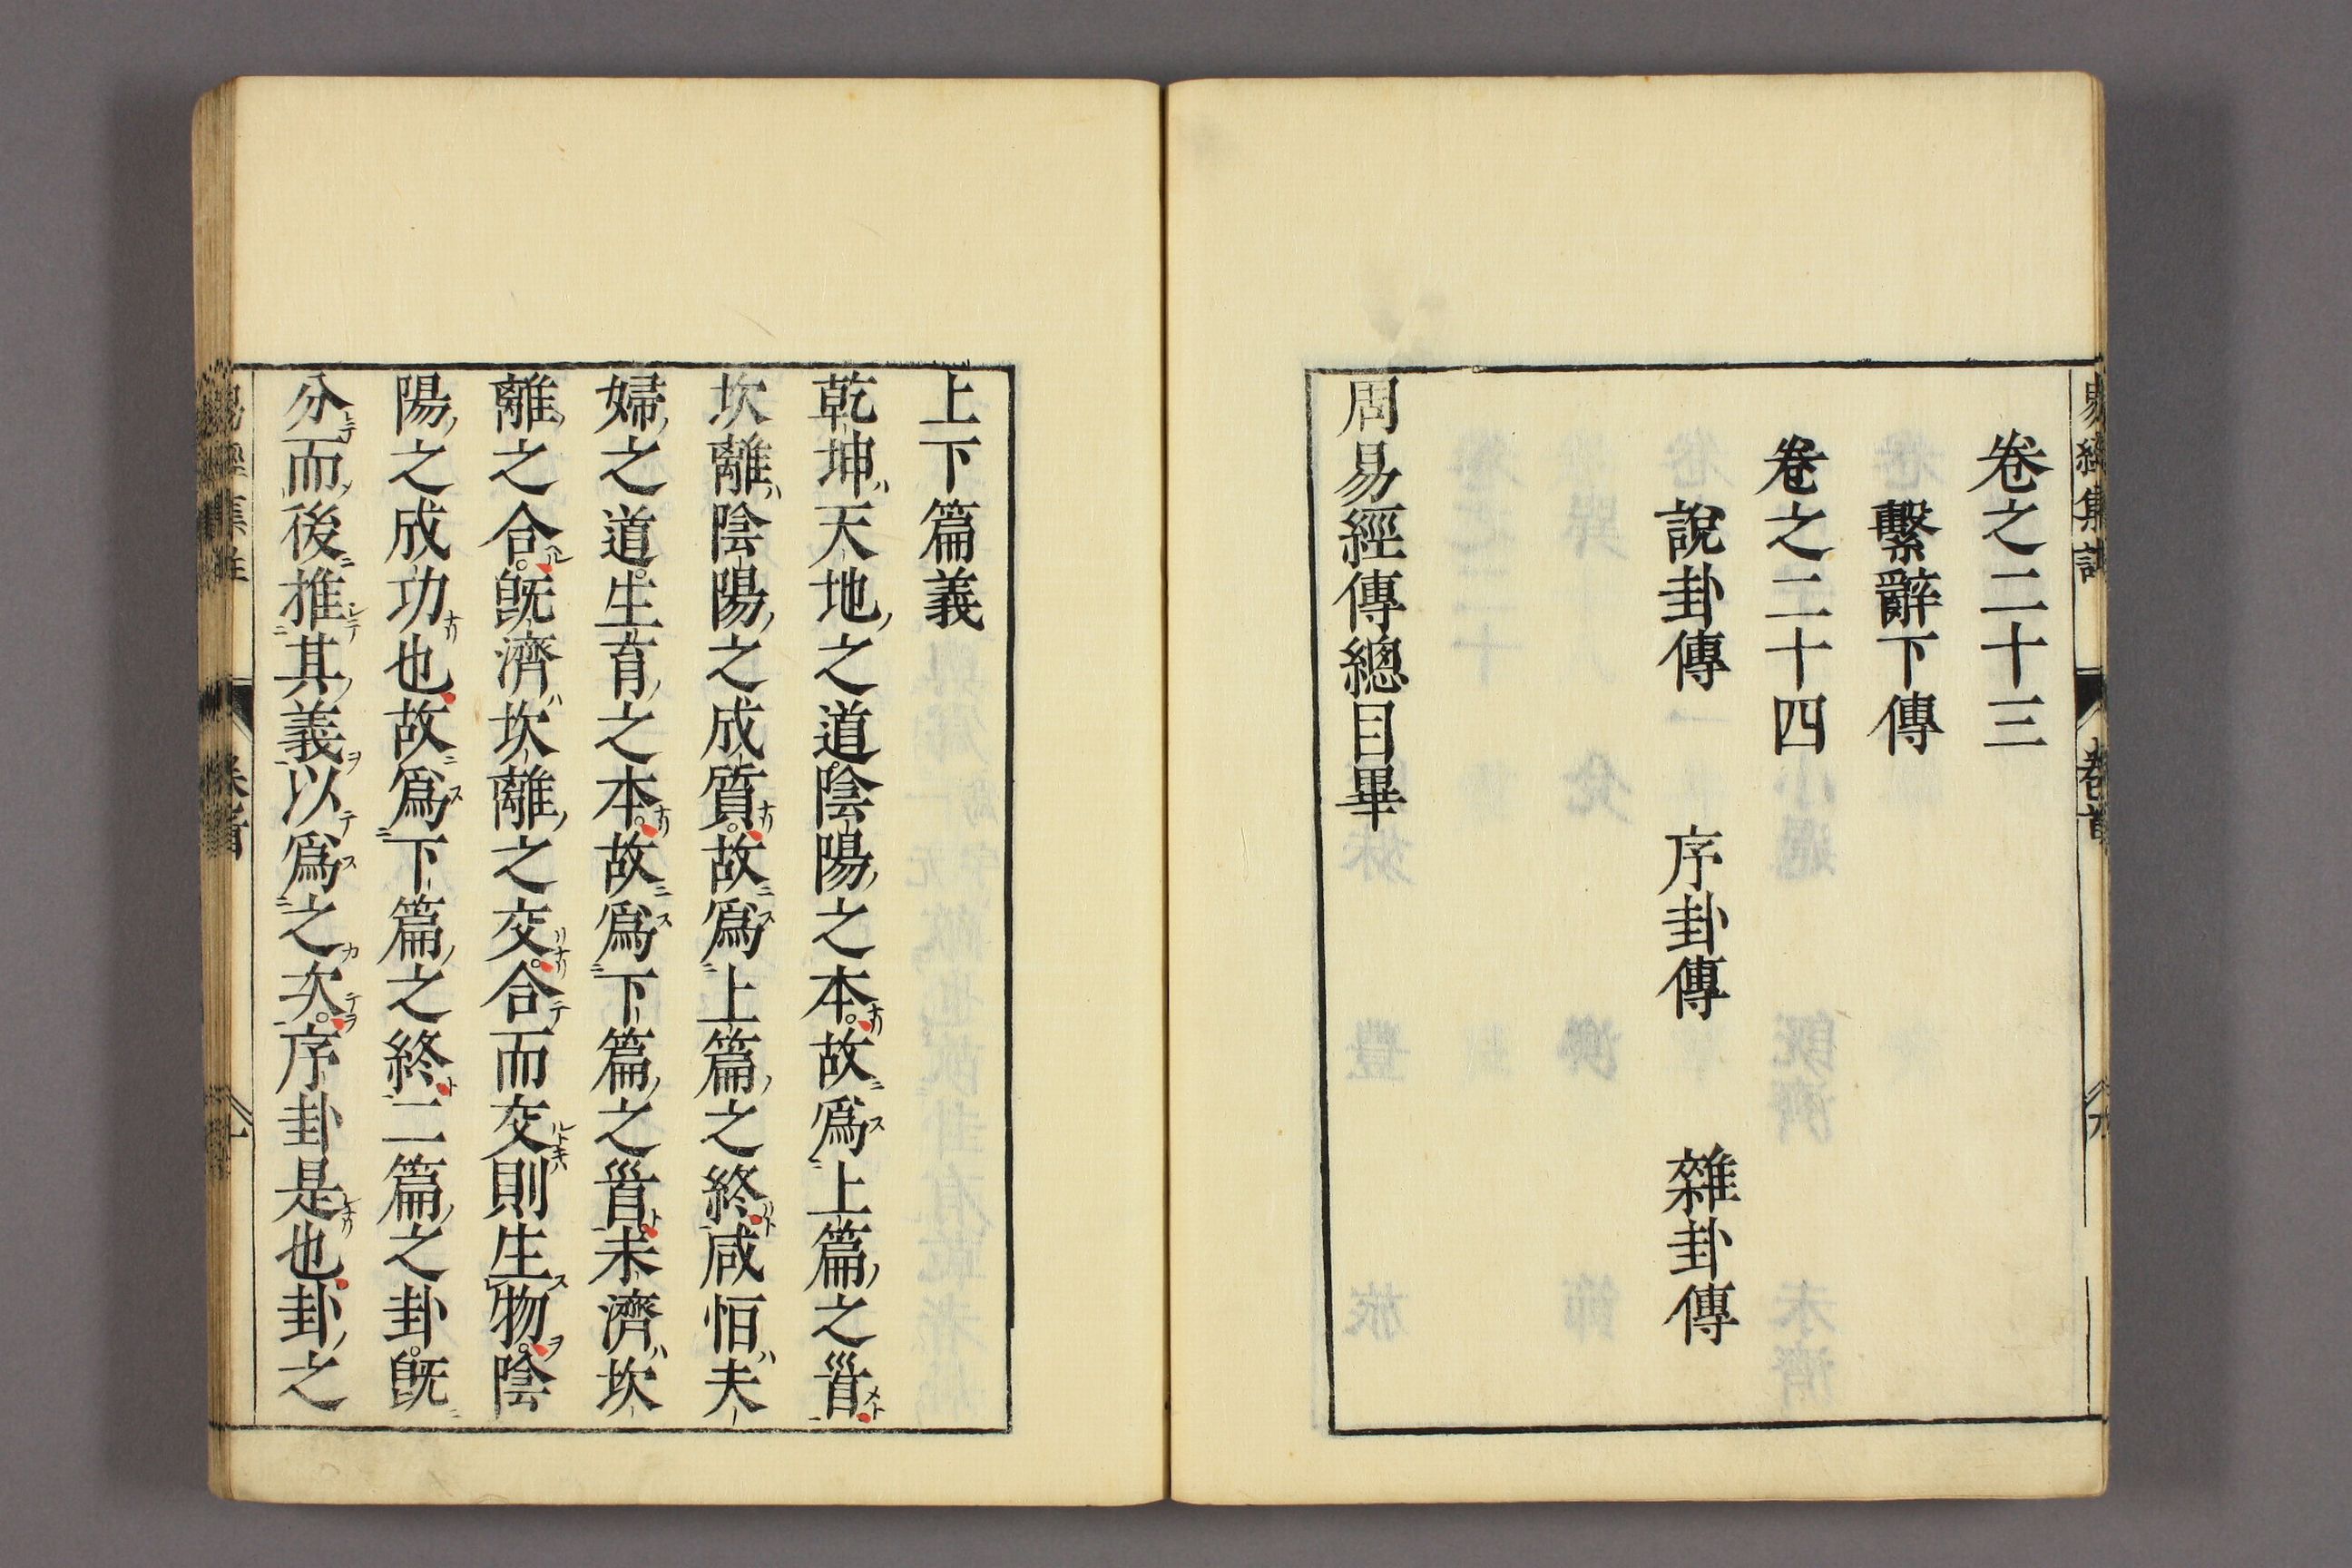 卷之二十三
繫辭下傳
卷之二十四
說卦傳 序卦傳 雜卦傳
周易經傳總目畢
上下篇義
乾坤天地之道陰陽之本故爲上篇之首
坎離陰陽之成質故爲上篇之終咸恒夫
婦之道生育之本故爲下篇之首未濟坎
離之合旣濟坎離之交合而交則生物陰
陽之成功也故爲下篇之終二篇之卦旣
分而後推其義以爲之次序卦是也卦之